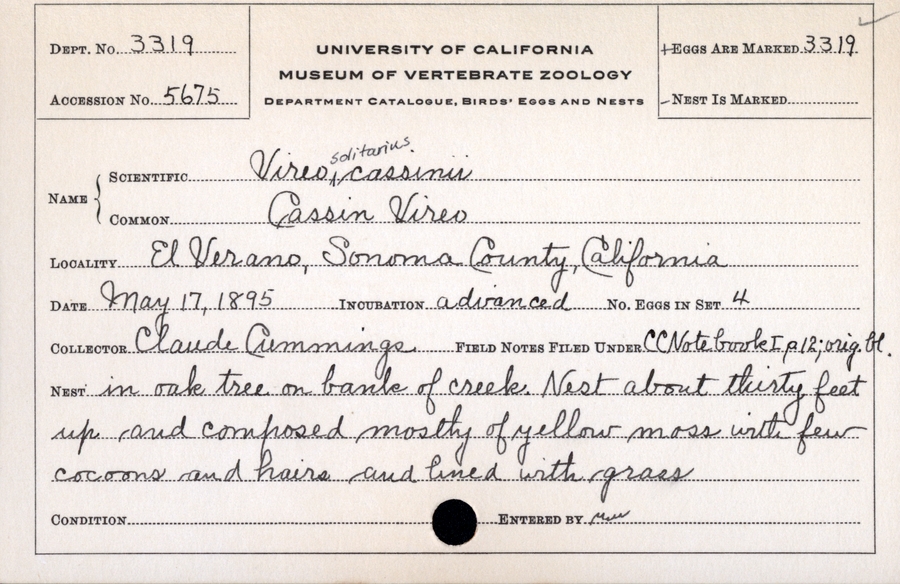 Dept. No. 3319
Accession No. 5675
UNIVERSITY OF CALIFORNIA
MUSEUM OF VERTEBRATE ZOOLOGY
Department Catalogue, Birds' Eggs and Nests
+Eggs Are Marked 3319
-Nest Is Marked
solitarius
Name { Scientific Vireo, cassinii
Common Cassin Vireo
Locality El Verano, Sonoma County, California
Date May 17, 1895 Incubation advanced No. Eggs in Set 4
Collector Claude Cummings Field Notes Filed Under CC Notebook I, p. 12; orig. bl.
Nest in oak tree on bank of creek. Nest about thirty feet
up and composed mostly of yellow moss with few
cocoons and hairs and lined with grass
Condition Entered by